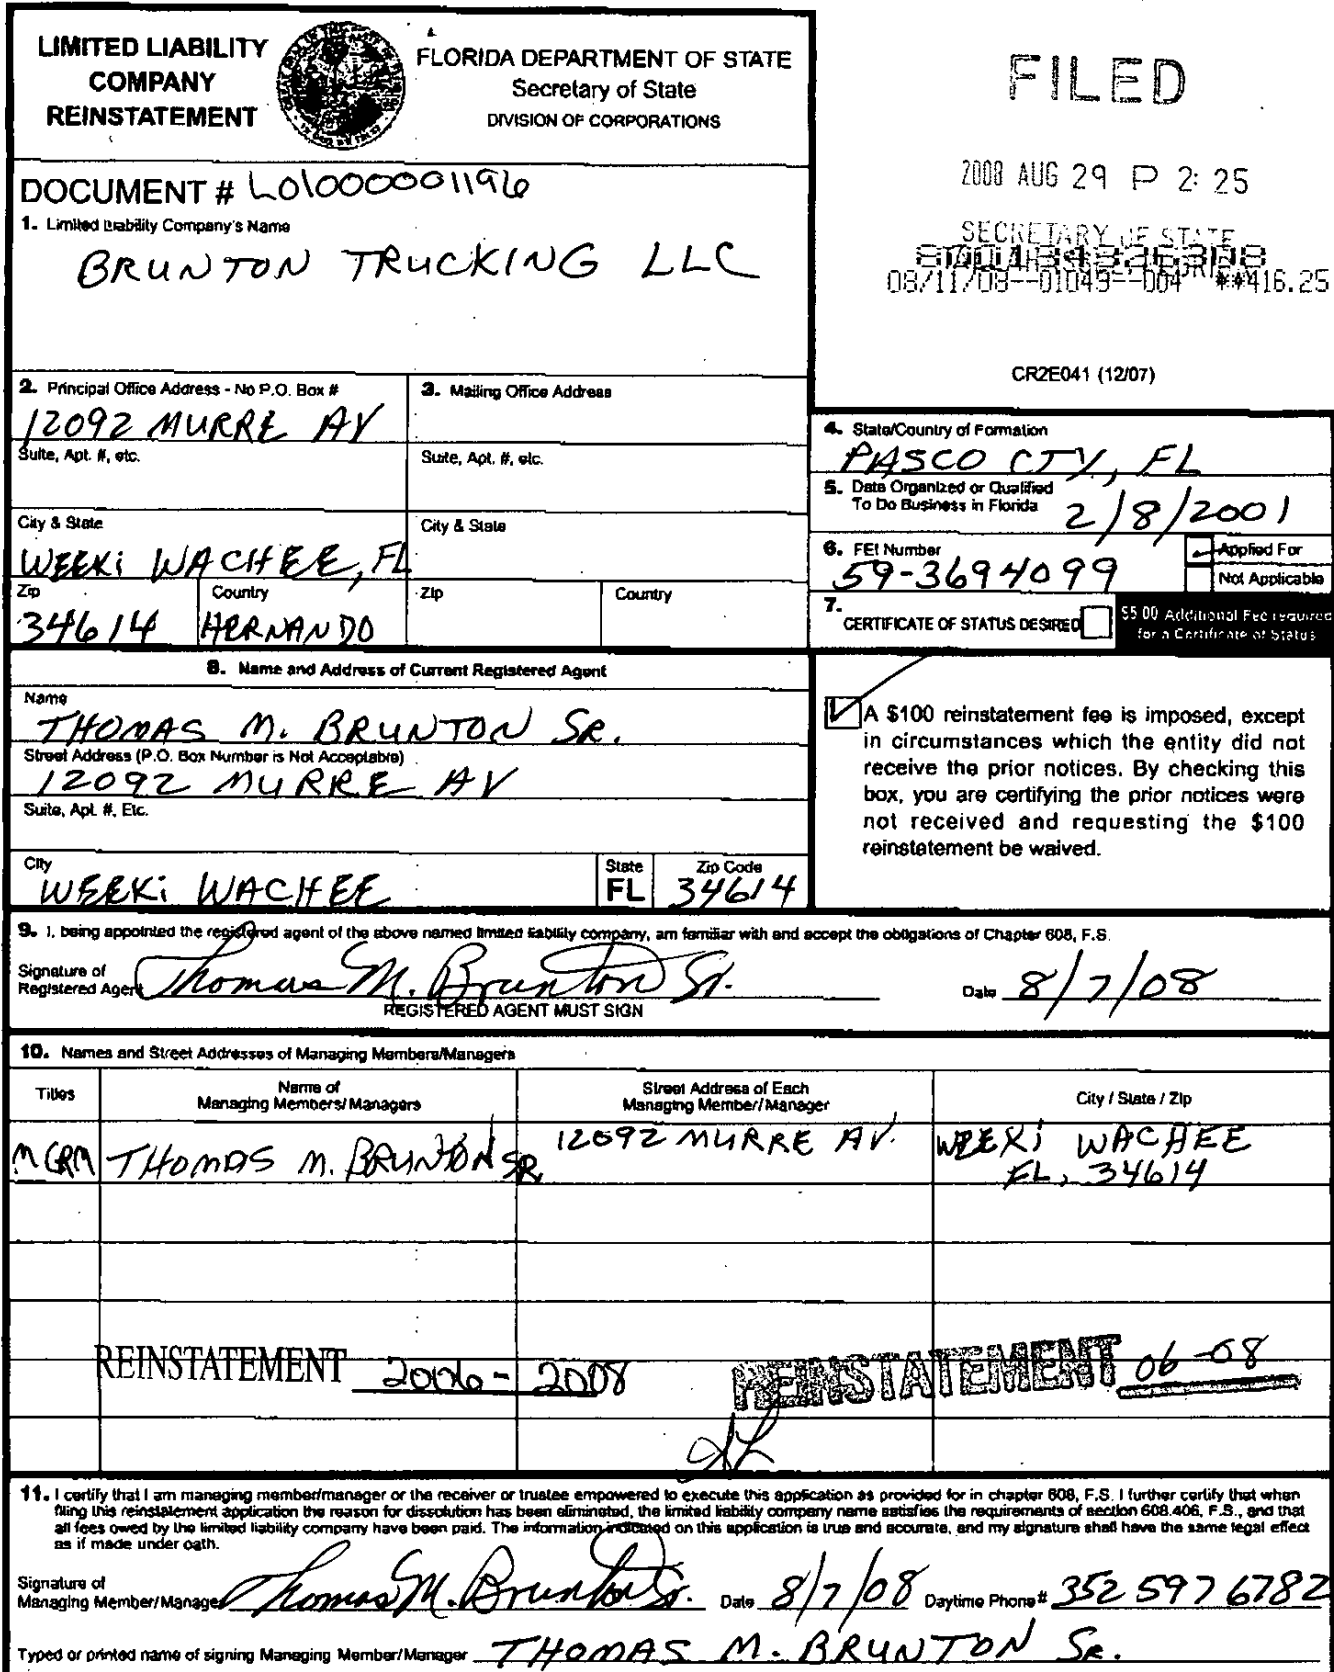 LIMITED LIABILITY
COMPANY
REINSTATEMENT
FLORIDA DEPARTMENT OF STATE
Secretary of State
DIVISION OF CORPORATIONS
FILED
2008 AUG 29 P 2: 25
SECRETARY OF STATE
08/11/08--01049--004 **416.25
CR2E041 (12/07)
DOCUMENT # L01000001196
1. Limited Liability Company's Name
BRUNTON TRUCKING LLC
2. Principal Office Address - No P.O. Box #
12092 MURRE AV
Suite, Apt. #, etc.
City & State
WEEKi WACHEE, FL
Zip
Country
34614
HERNANDO
3. Mailing Office Address
Suite, Apt. #, etc.
City & State
Zip
Country
4. State/Country of Formation
PASCO CTY, FL
5. Date Organized or Qualified
To Do Business in Florida
2/8/2001
6. FEI Number
59-3694099
Applied For
Not Applicable
7.
CERTIFICATE OF STATUS DESIRED
$5.00 Additional Fee required
for a Certificate of Status
8. Name and Address of Current Registered Agent
Name
THOMAS M. BRUNTON SR.
Street Address (P.O. Box Number is Not Acceptable)
12092 MURRE AV
Suite, Apt. #, Etc.
City
WEEKi WACHEE
State
FL
Zip Code
34614
A $100 reinstatement fee is imposed, except
in circumstances which the entity did not
receive the prior notices. By checking this
box, you are certifying the prior notices were
not received and requesting the $100
reinstatement be waived.
9. I, being appointed the registered agent of the above named limited liability company, am familiar with and accept the obligations of Chapter 608, F.S.
Signature of
Registered Agent
Thomas M. Brunton Sr.
Date 8/7/08
REGISTERED AGENT MUST SIGN
10. Names and Street Addresses of Managing Members/Managers
Titles
Name of
Managing Members/Managers
Street Address of Each
Managing Member/Manager
City / State / Zip
MGRM
THOMAS M. BRUNTON SR.
12092 MURRE AV.
WEEKi WACHEE
FL, 34614
REINSTATEMENT 2006-2008
REINSTATEMENT 06-08
11. I certify that I am managing member/manager or the receiver or trustee empowered to execute this application as provided for in chapter 608, F.S. I further certify that when
filing this reinstatement application the reason for dissolution has been eliminated, the limited liability company name satisfies the requirements of section 608.406, F.S., and that
all fees owed by the limited liability company have been paid. The information indicated on this application is true and accurate, and my signature shall have the same legal effect
as if made under oath.
Signature of
Managing Member/Manager
Thomas M. Brunton Sr.
Date 8/7/08
Daytime Phone # 352 597 6782
Typed or printed name of signing Managing Member/Manager THOMAS M. BRUNTON SR.